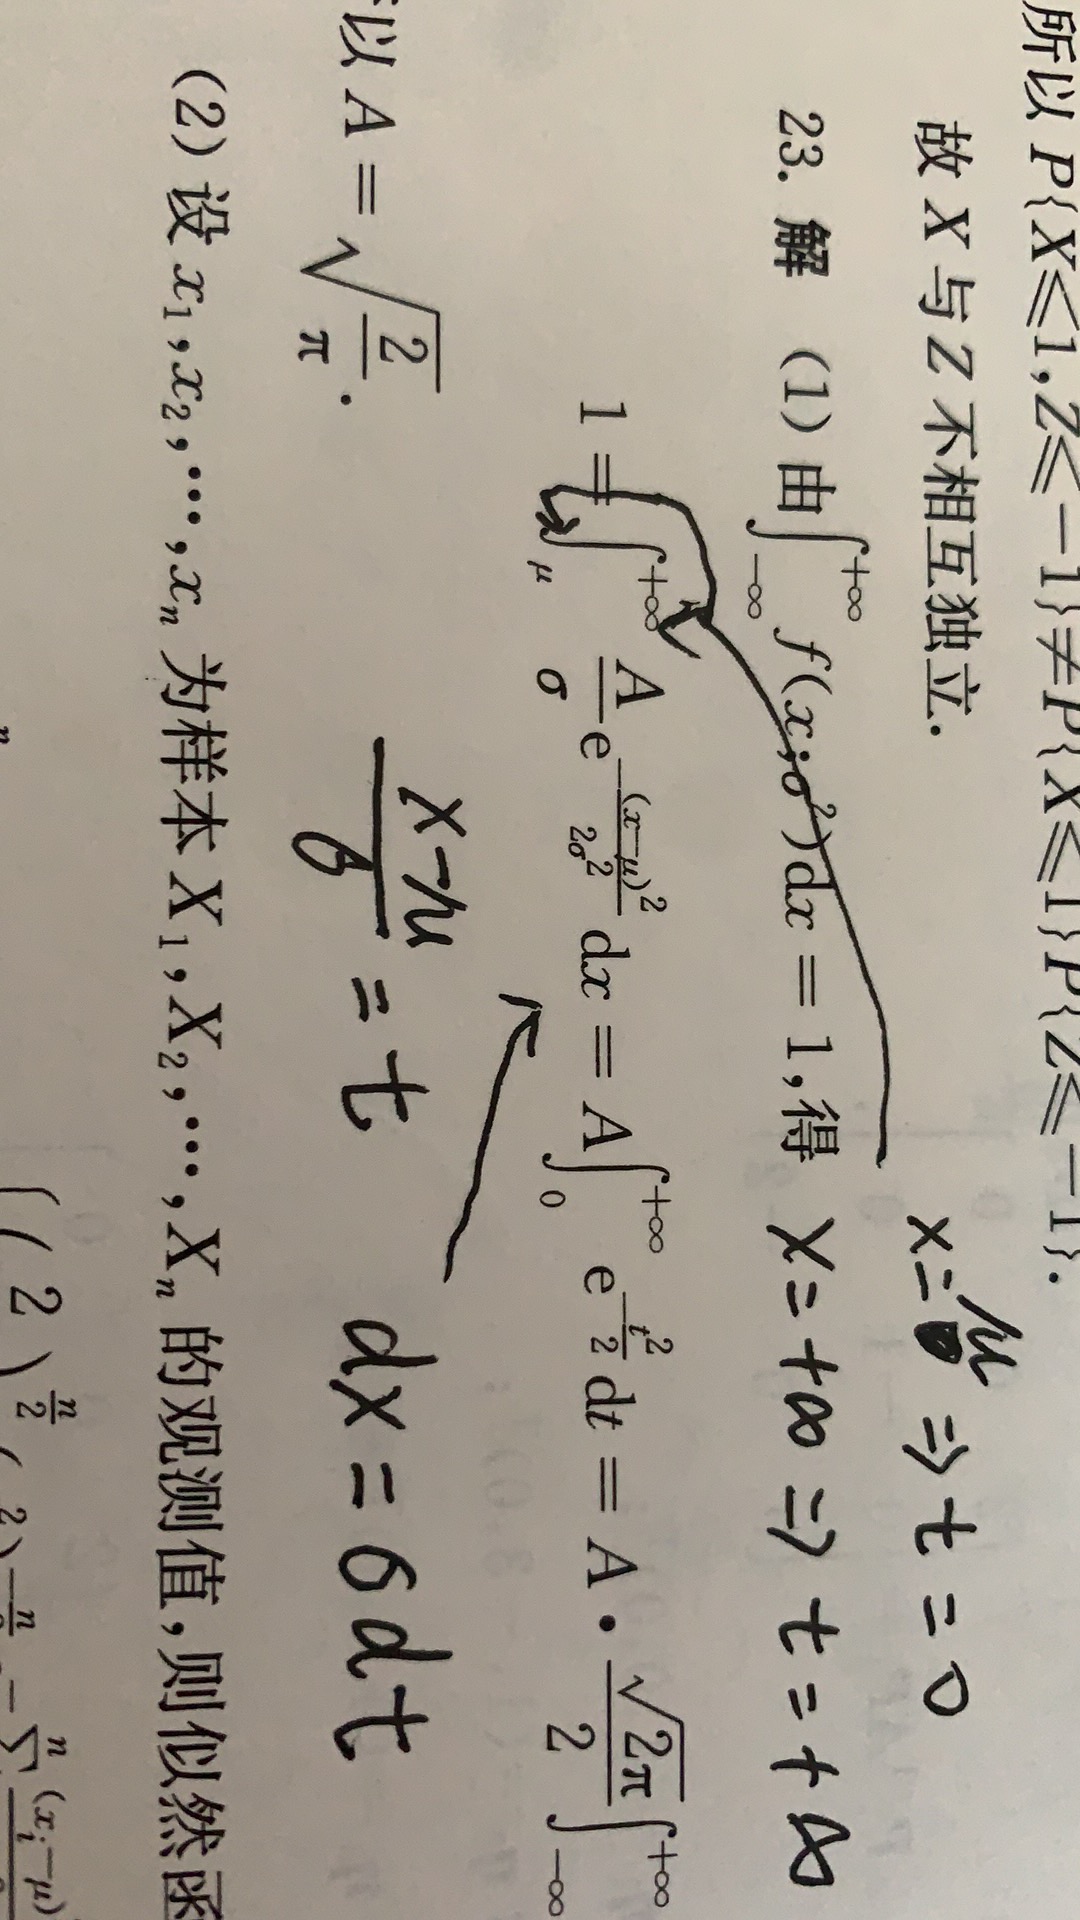 所以 P{X≤1,Z≤-1}≠P{X≤1}P{Z≤-1}.
故 X 与 Z 不相互独立.
x=μ ⇒ t=0
23. 解 (1) 由∫_{-∞}^{+∞} f(x;σ²)dx=1,得
x=+∞ ⇒ t=+∞
1=∫_{μ}^{+∞} \frac{A}{σ}e^{-\frac{(x-μ)^2}{2σ^2}}dx=A∫_{0}^{+∞} e^{-\frac{t^2}{2}}dt=A·\frac{\sqrt{2π}}{2}∫_{-∞}^{+∞}
\frac{x-μ}{σ}=t dx=σdt
以 A=\sqrt{\frac{2}{π}}.
(2) 设 x_1,x_2,…,x_n 为样本 X_1,X_2,…,X_n 的观测值,则似然函